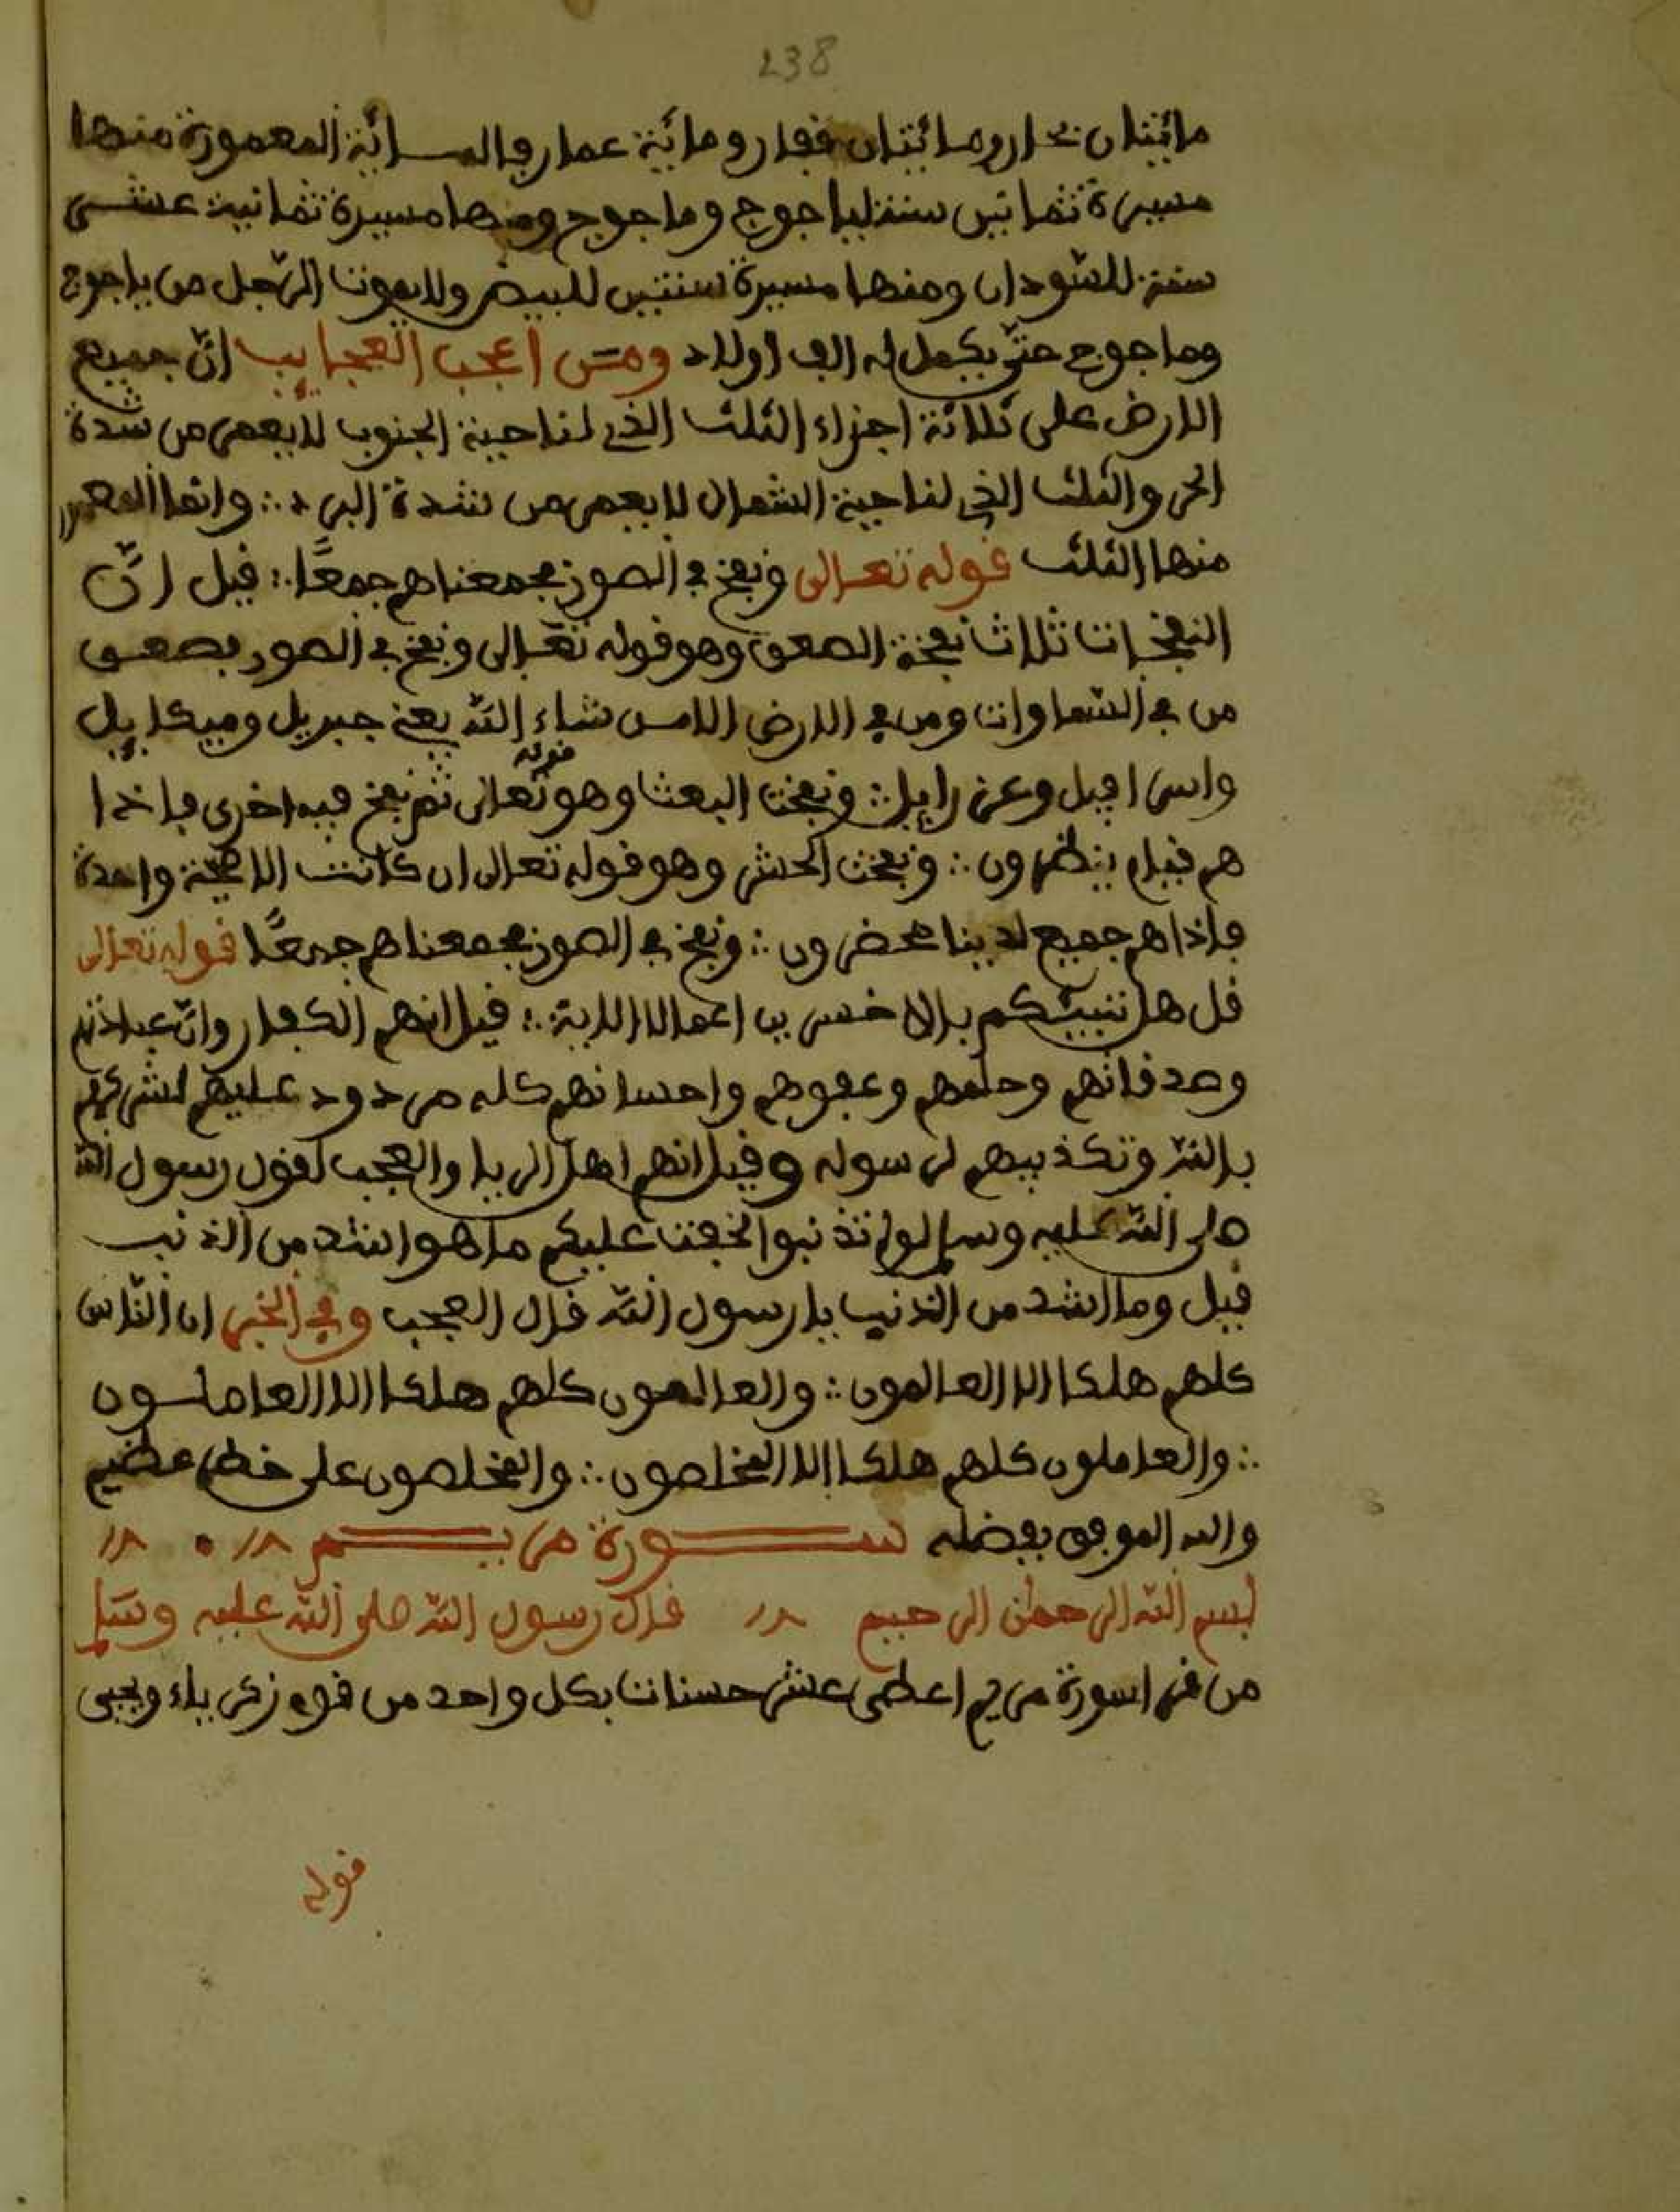 238
مائتان بحار ومائتان قفار ومائة عمار والمائة المعمورة منها
مسيرة ثمانين سنة لياجوج وماجوج ومنها مسيرة ثمانية عشر
سنة للسّودان ومنها مسيرة سنتين للبيض ولا يموت الرّجل من ياجوج
وماجوج حتّى يكمل له الف اولاد ومن اعجب العجايب انّ جميع
الارض على ثلاثة اجزاء الثلث الذي لناحية الجنوب لا يعمر من شدة
الحر والثلث الذي لناحية الشمال لا يعمر من شدة البرد ∴ وانما المعمور
منها الثلث قوله تعالى ونفخ في الصور فجمعناهم جمعًا ∴ قيل انّ
النفخات ثلاث نفخة الصعق وهو قوله تعالى ونفخ في الصور فصعق
من في السّماوات ومن في الارض الا من شاء اللّه يعني جبريل وميكاييل
واسرافيل وعزراييل ∴ ونفخت البعث وهو قوله تعالى ثم نفخ فيه اخرى فاذا
هم قيام ينظرون ∴ ونفخت الحشر وهو قوله تعالى ان كانت الا صيحة واحدة
فاذا هم جميع لدينا محضرون ∴ ونفخ في الصور فجمعناهم جمعًا قوله تعالى
قل هل ننبيكم بالاخسرين اعمالا الاية ∴ قيل انهم الكفار وانّ عبادتهم
وصدقاتهم وحلمهم وعفوهم واحسانهم كله مردود عليهم لشركهم
باللّه وتكذيبهم لرسوله وقيل انهم اهل الريا والعجب لقول رسول اللّه
صلى اللّه عليه وسلم لو لم تذنبوا لخفت عليكم ما هو اشد من الذنب
قيل وما اشد من الذنب يا رسول اللّه قال العجب وفي الخبر ان النّاس
كلهم هلكا الا العالمون ∴ والعالمون كلهم هلكا الا العاملون
∴ والعاملون كلهم هلكا الا المخلصون ∴ والمخلصون على خطر عظيم
والله الموفق بفضله ســورة مريــم
بسم اللّه الرحمان الرحيم قال رسول اللّه صلى اللّه عليه وسلم
من قرا سورة مريم اعطي عشر حسنات بكل واحد من قوم زكرياء ويحيى
قوله